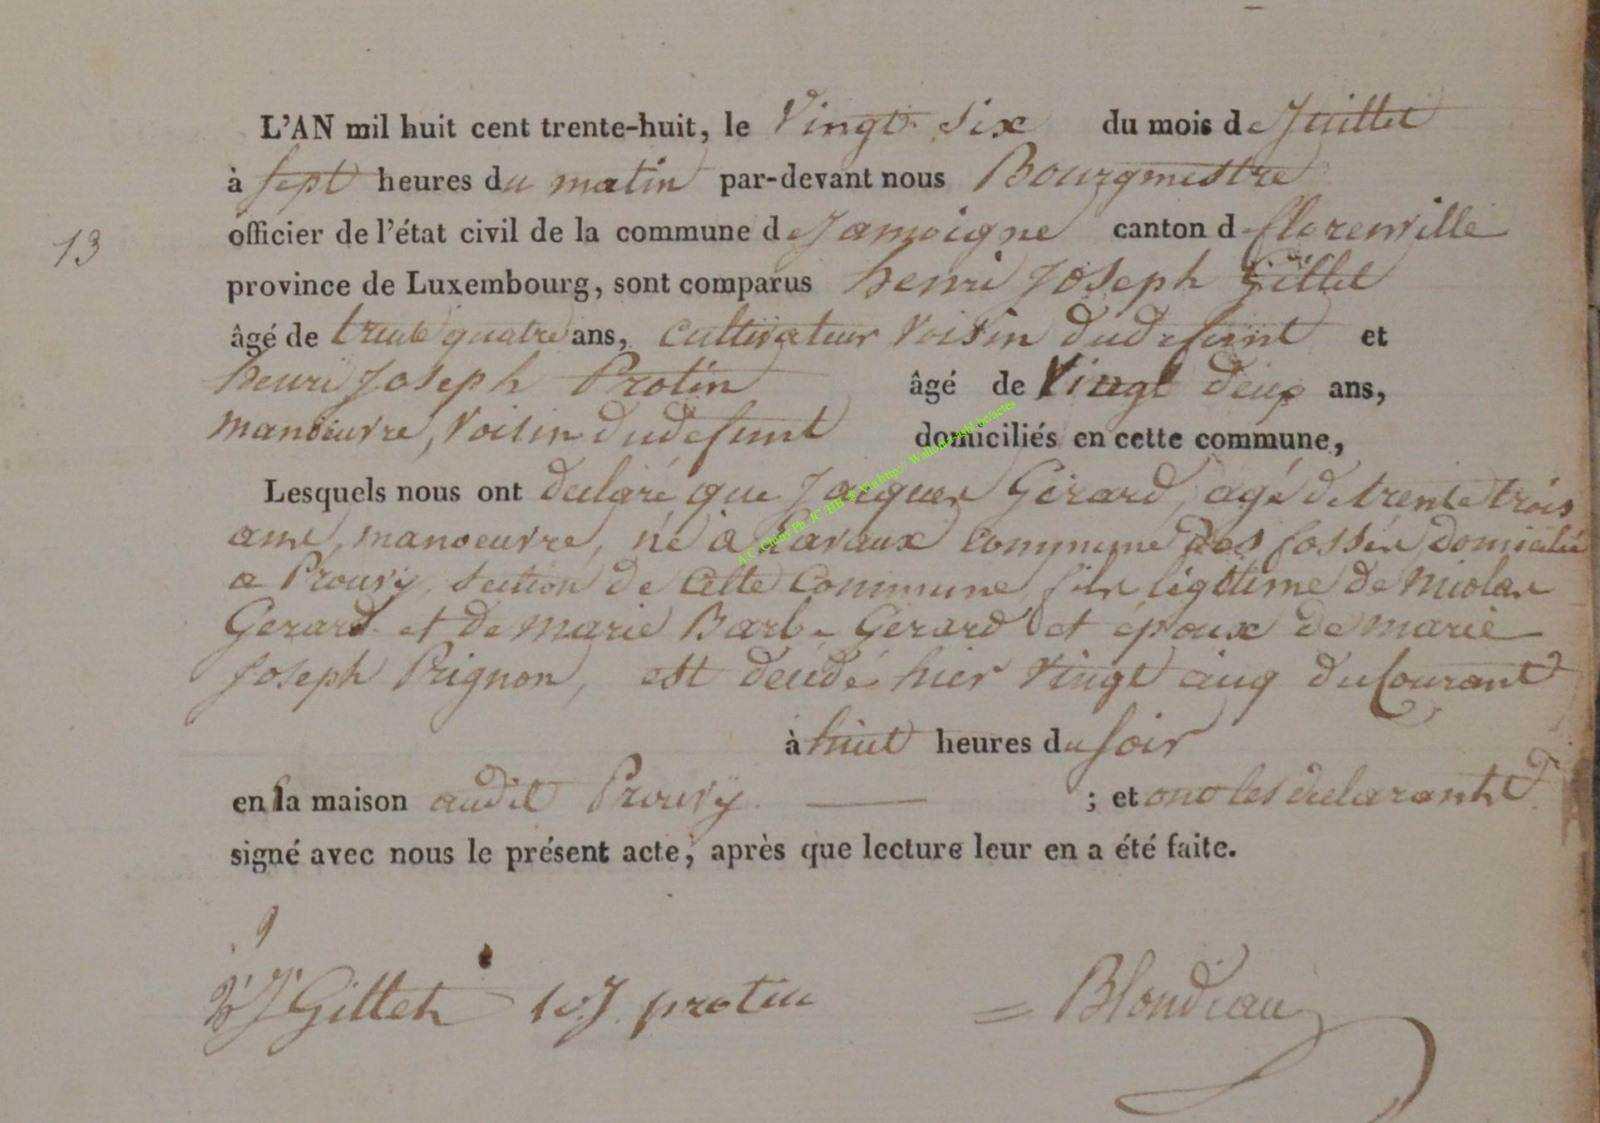 L'AN mil huit cent trente-huit, le Vingt Six du mois de Juillet
à sept heures du matin par-devant nous Bourgmestre
officier de l'état civil de la commune de Jamoigne canton d florenville
13
province de Luxembourg, sont comparus henri Joseph Gillet
âgé de trente quatre ans, cultivateur Voisin dudefunt et
henri Joseph Protin âgé de Vingt deux ans,
manoeuvre, Voisin dudefunt domiciliés en cette commune,
Lesquels nous ont declaré que Jacques Gérard, agé de trente trois
ans, manoeuvre, né à Lavaux commune des fossés, domicilié
a Prouvy, section de cette Commune, fils légitime de Nicolas
Gerard et de marie Barbe Gérard et époux de marie
Joseph Prignon, est décédé hier Vingt cinq du Courant
à huit heures du soir
en la maison audit Prouvy ; et ont les declarants
signé avec nous le présent acte, après que lecture leur en a été faite.
h J Gillet h.J. protin = Blondiau